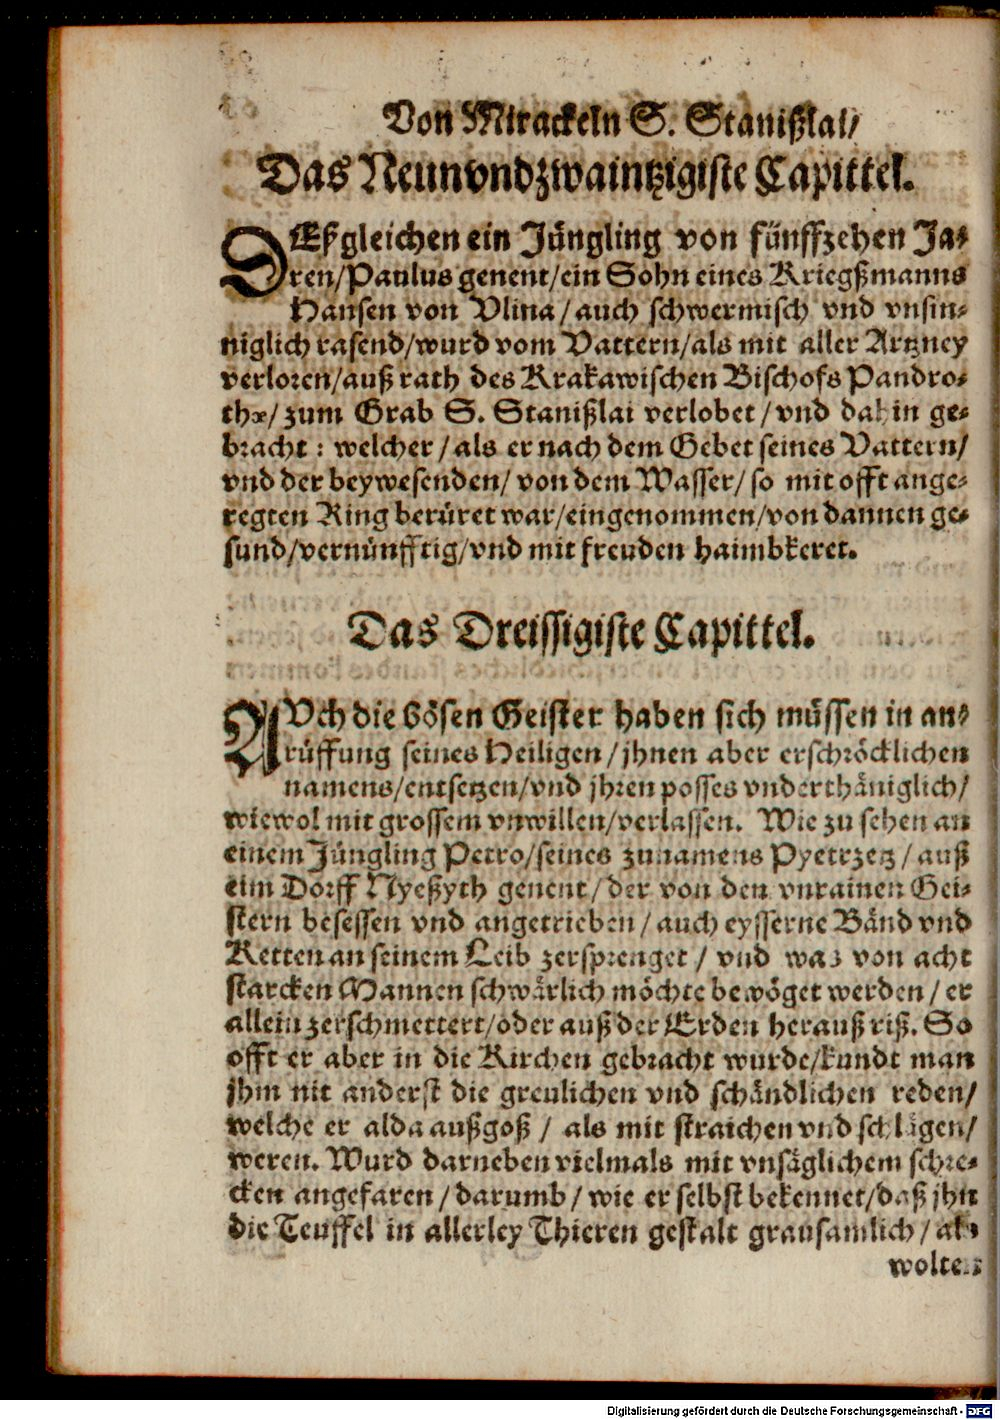 Von Mirackeln S. Stanißlai/
Das Neunvndzwaintzigiste Capittel.
DEßgleichen ein Jüngling von fünffzehen Ja-
ren/Paulus genent/ein Sohn eines Kriegßmanns
Hansen von Vlina/auch schwermisch vnd vnsin-
niglich rasend/wurd vom Vattern/als mit aller Artzney
verloren/auß rath des Krakawischen Bischofs Pandro-
thæ/zum Grab S. Stanißlai verlobet/vnd dahin ge-
bracht: welcher/als er nach dem Gebet seines Vattern/
vnd der beywesenden/von dem Wasser/so mit offt ange-
regten Ring berüret war/eingenommen/von dannen ge-
sund/vernünfftig/vnd mit freuden haimbkeret.
Das Dreissigiste Capittel.
AVch die bösen Geister haben sich müssen in an-
rüffung seines Heiligen/jhnen aber erschröcklichen
namens/entsetzen/vnd jhren posses vnderthäniglich/
wiewol mit grossem vnwillen/verlassen. Wie zu sehen an
einem Jüngling Petro/seines zunamens Pyetrzetz/auß
eim Dorff Nyeßyth genent/der von den vnrainen Gei-
stern besessen vnd angetrieben/auch eysserne Bänd vnd
Ketten an seinem Leib zersprenget/vnd was von acht
starcken Mannen schwärlich möchte bewöget werden/er
allein zerschmettert/oder auß der Erden herauß riß. So
offt er aber in die Kirchen gebracht wurde/kundt man
jhm nit anderst die greulichen vnd schändlichen reden/
welche er alda außgoß/als mit straichen vnd schlägen/
weren. Wurd darneben vielmals mit vnsäglichem schre-
cken angefaren/darumb/wie er selbst bekennet/daß jhn
die Teuffel in allerley Thieren gestalt grausamlich/als
wolten
Digitalisierung gefördert durch die Deutsche Forschungsgemeinschaft - DFG